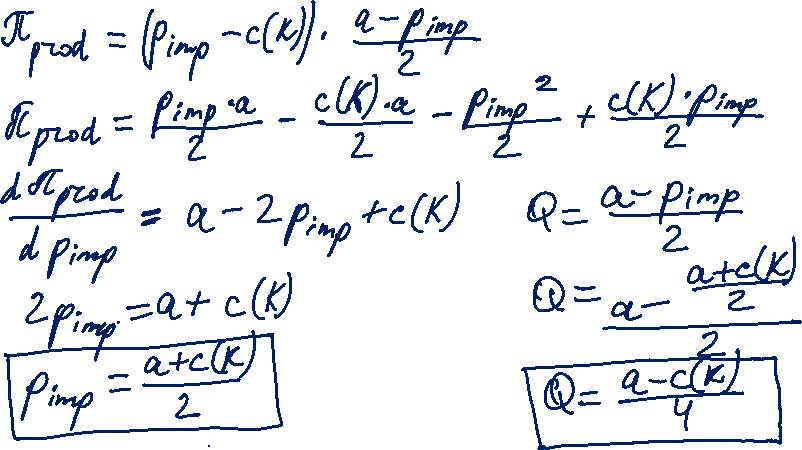 π_prod = (p_imp - c(K)) · (a - p_imp)/2
π_prod = (p_imp · a)/2 - (c(K) · a)/2 - (p_imp²)/2 + (c(K) · p_imp)/2
dπ_prod/dp_imp = a - 2p_imp + c(K)
2p_imp = a + c(K)
p_imp = (a + c(K))/2
Q = (a - p_imp)/2
Q = (a - (a + c(K))/2)/2
Q = (a - c(K))/4